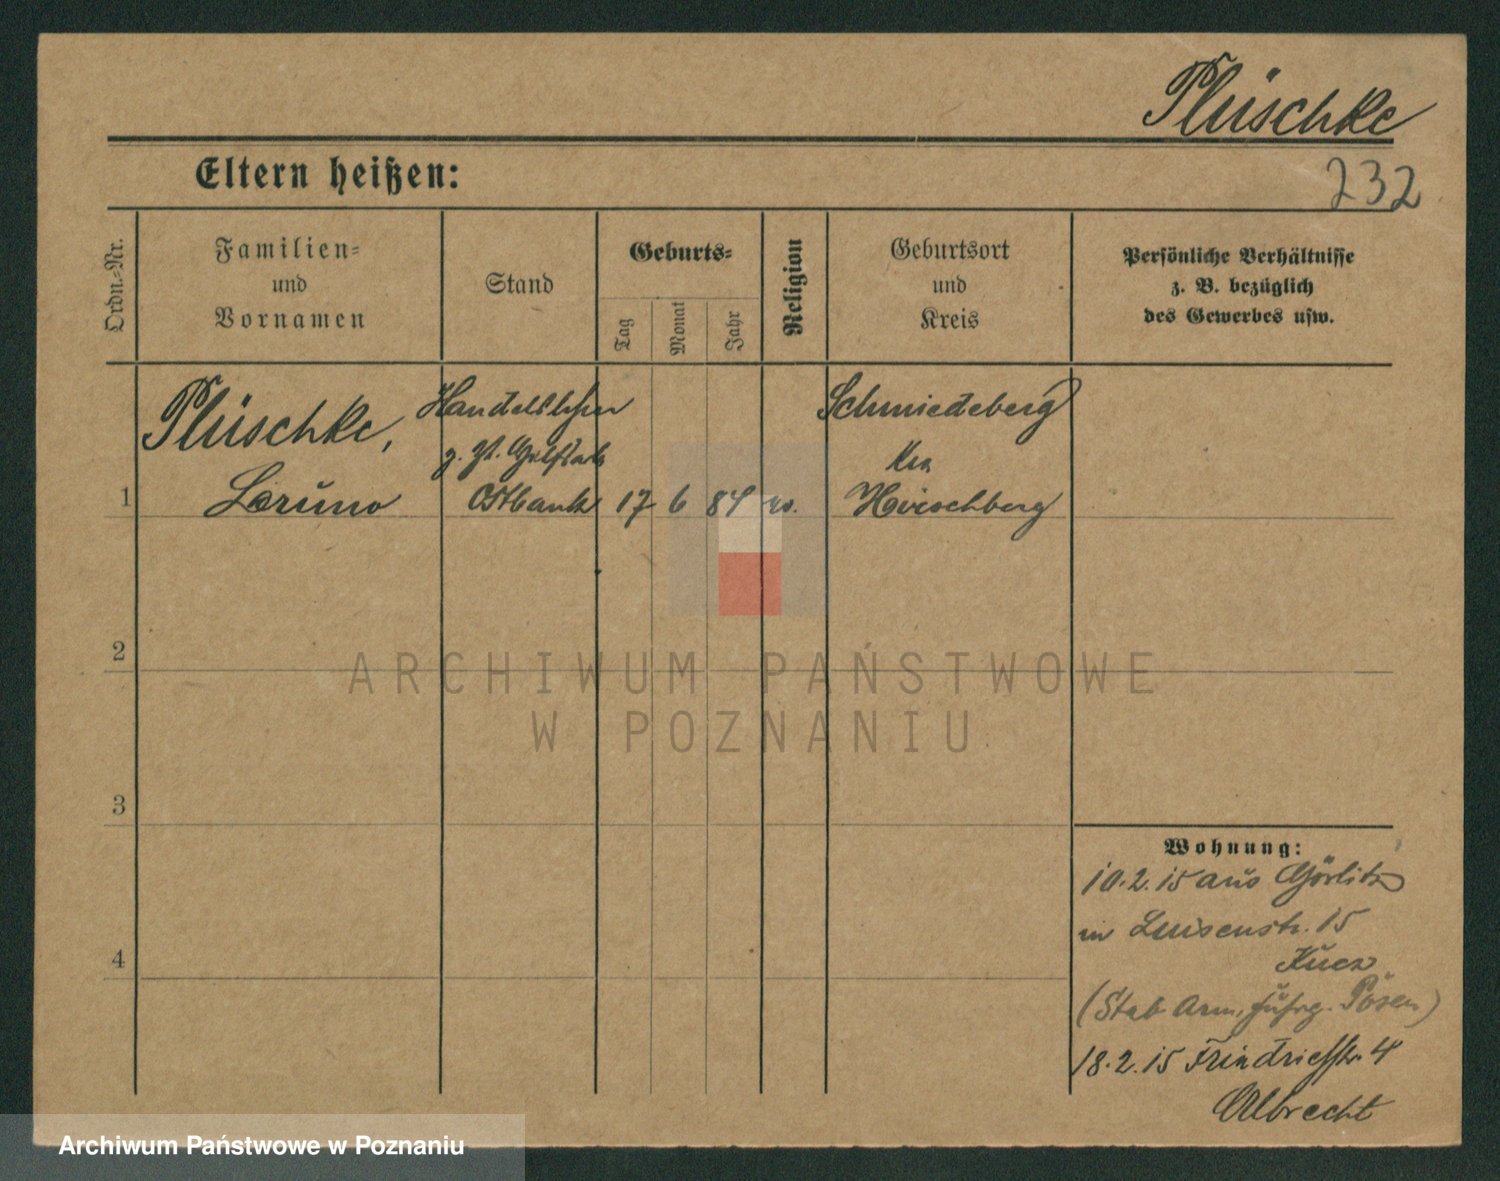 Plüschke
Eltern heißen:
232
Ordn.-Nr.
Familien-
und
Vornamen
Stand
Geburts-
Tag
Monat
Jahr
Religion
Geburtsort
und
Kreis
Persönliche Verhältnisse
z. B. bezüglich
des Gewerbes usw.
Plüschke,
Bruno
Handelslehrer
z. Zt.
Ostbank
1
17
6
84
ev.
Schmiedeberg
Krs
Hirschberg
2
3
4
Wohnung:
10.2.15 aus Görlitz
in Luisenstr. 15
(Stab Arm. Posen)
18.2.15 Friedrichstr. 4
Albrecht
ARCHIWUM PAŃSTWOWE
W POZNANIU
Archiwum Państwowe w Poznaniu